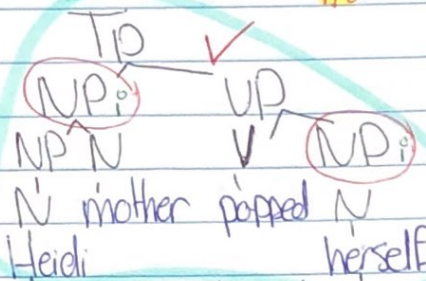 TP
NPi VP
NP N V NPi
N mother popped N
Heidi herself